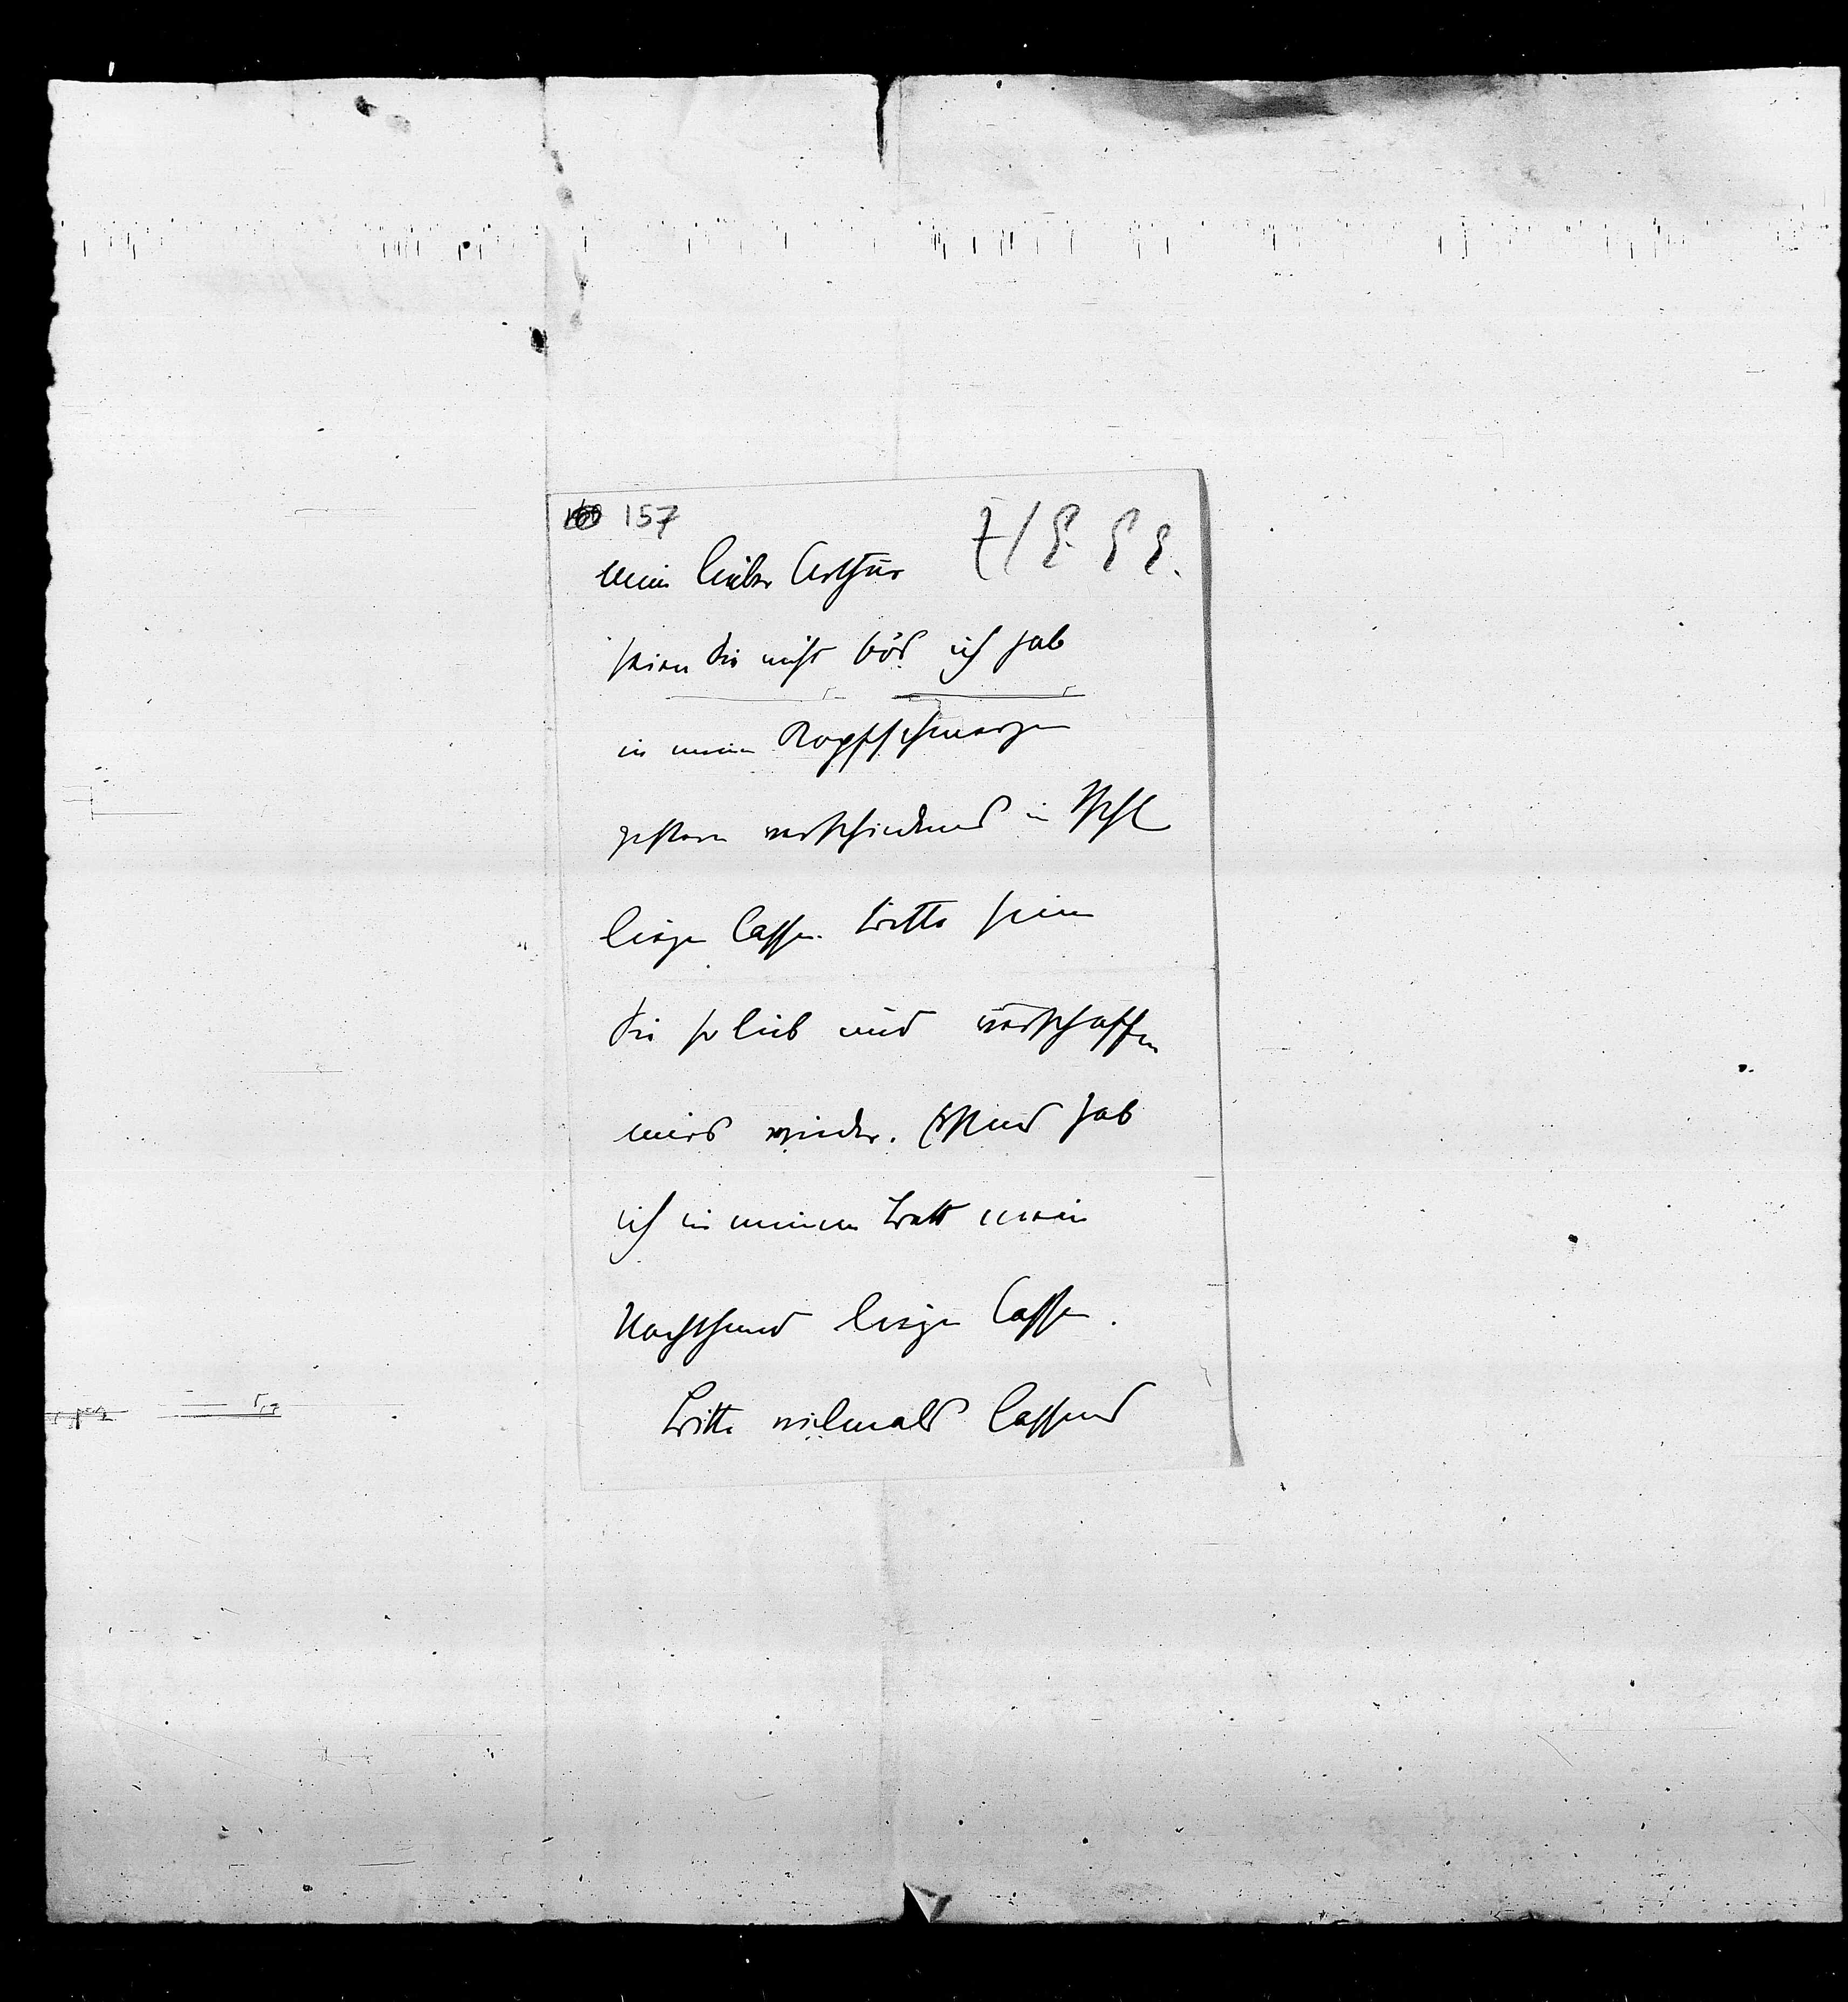 157 7/8. 99.
mein lieber Arthur
seien Sie nicht bös ich hab
in meinen Kopfschmerzen
gestern verschiedenes in Ischl
liegen lassen. Bitte seien
Sie so lieb und verschaffen
mirs wieder. Erstens hab
ich in meinem Bett mein
Nachthemd liegen lassen.
Bitte vielmals lassens